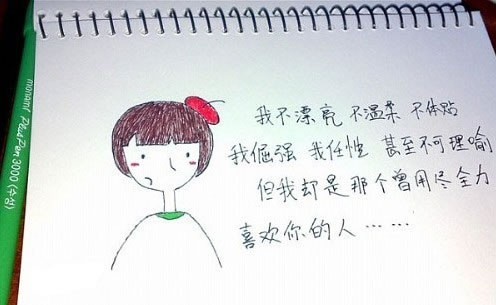 我不漂亮 不温柔 不体贴
我倔强 我任性 甚至不可理喻
但我却是那个曾用尽全力
喜欢你的人……
monami Plus Pen 3000 (수성)